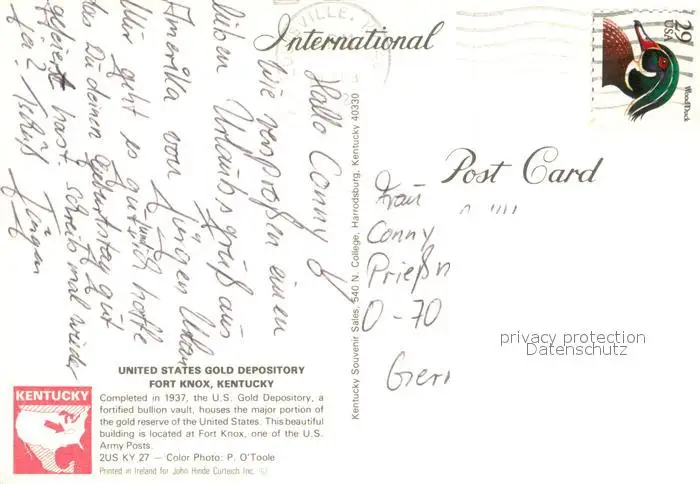 International
Post Card
29
USA
Wood Duck
VILLE,
Hallo Conny
Wie versproßen einen
lieben Urlaubsgruß aus
Amerika vom Jürgen
Mir geht es gut und ich hoffe
das Du deinen Geburtstag gut
gefeiert hast. schreib mal wieder
ja?
Jürgen
Frau
Conny
Prießn
O-70
Gern
Kentucky Souvenir Sales, 540 N. College, Harrodsburg, Kentucky 40330
privacy protection
Datenschutz
UNITED STATES GOLD DEPOSITORY
FORT KNOX, KENTUCKY
KENTUCKY
Completed in 1937, the U.S. Gold Depository, a
fortified bullion vault, houses the major portion of
the gold reserve of the United States. This beautiful
building is located at Fort Knox, one of the U.S.
Army Posts.
2US KY 27 — Color Photo: P. O'Toole
Printed in Ireland for John Hinde Curteich Inc.